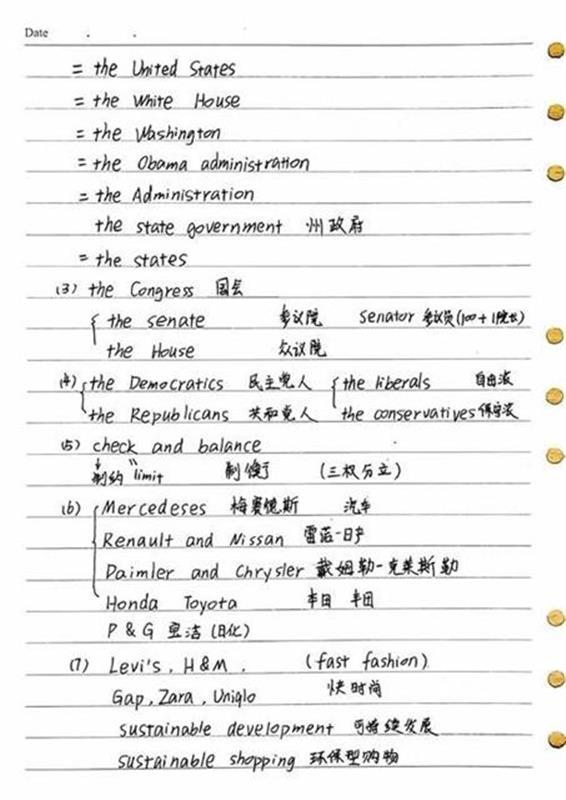 Date . .
= the United States
= the White House
= the Washington
= the Obama administration
= the Administration
the state government 州政府
= the states
(3) the Congress 国会
the senate 参议院 Senator 参议员(100+1院长)
the House 众议院
(4) the Democratics 民主党人 the liberals 自由派
the Republicans 共和党人 the conservatives 保守派
(5) check and balance
制约 "limit 制衡 (三权分立)
(6) Mercedeses 梅赛德斯 汽车
Renault and Nissan 雷诺-日产
Daimler and Chrysler 戴姆勒-克莱斯勒
Honda Toyota 本田 丰田
P & G 宝洁 (日化)
(7) Levi's, H&M, (fast fashion)
Gap, Zara, Uniqlo 快时尚
sustainable development 可持续发展
sustainable shopping 环保型购物